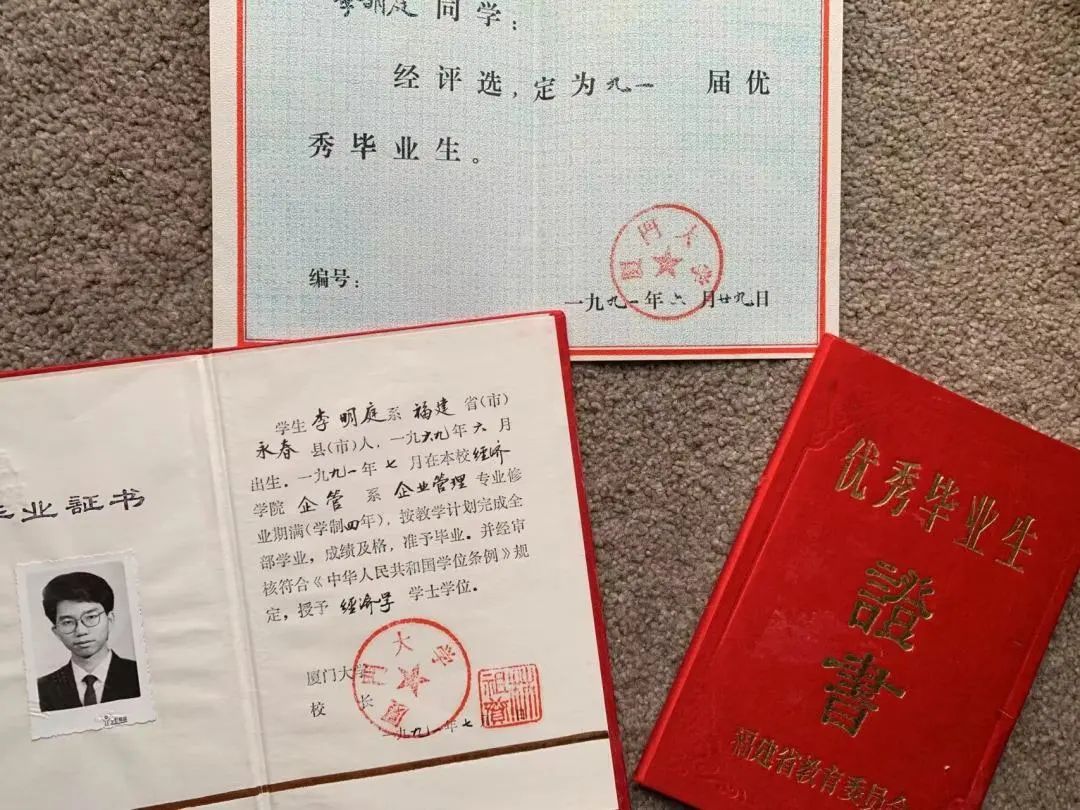 李明庭同学：
经评选，定为九一 届优
秀毕业生。
编号：
厦门大学
一九九一年六月廿九日
毕业証书
学生李明庭系福建省(市)
永春县(市)人，一九六九年六月
出生。一九九一年七月在本校经济
学院企管系企业管理专业修
业期满(学制四年)，按教学计划完成全
部学业，成绩及格，准予毕业。并经审
核符合《中华人民共和国学位条例》规
定，授予经济学 学士学位。
厦门大学
校 长
厦门大学
林祖赓
一九九一年七
优秀毕业生
證書
福建省教育委员会